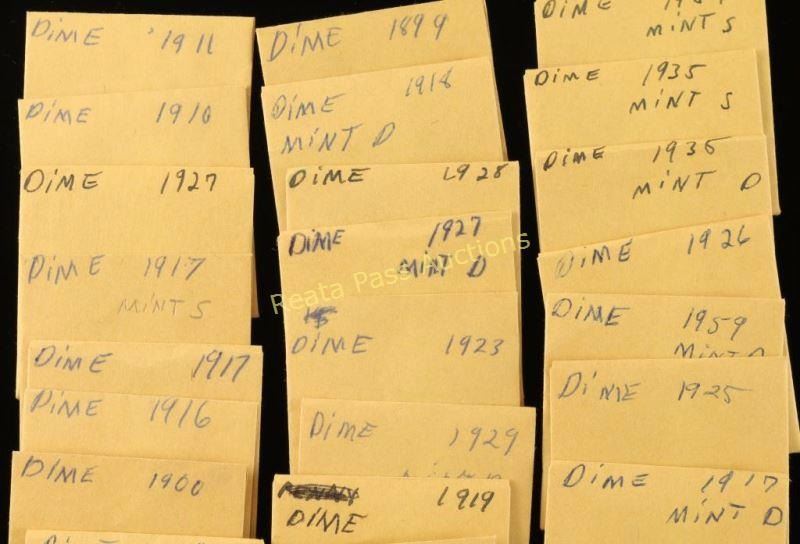 DIME 1911
DIME 1910
DIME 1927
DIME 1917
MINT S
DIME 1917
DIME 1916
DIME 1900
DIME 1899
DIME 1918
MINT D
DIME 1928
DIME 1927
MINT D
DIME 1923
DIME 1929
DIME 1919
DIME
MINT S
DIME 1935
MINT S
DIME 1935
MINT D
DIME 1926
DIME 1959
MINT D
DIME 1925
DIME 1917
MINT D
Reata Pass Auctions